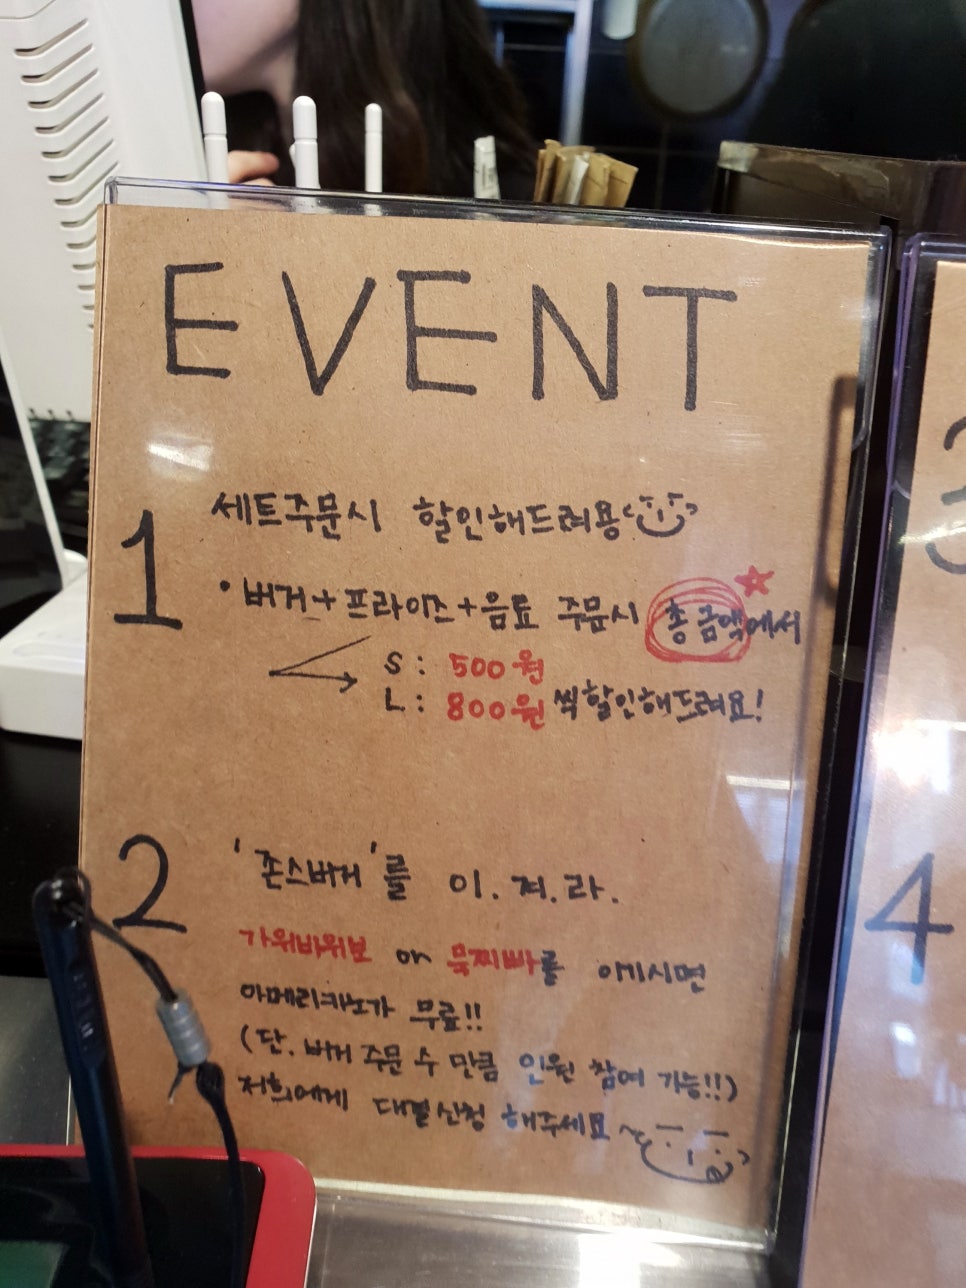 EVENT
1
세트주문시 할인해드려용
• 버거+프라이즈+음료 주문시 총 금액에서
S : 500원
L : 800원 씩 할인해드려요!
2
'존스버거'를 이.겨.라.
가위바위보 or 묵찌빠를 이기시면
아메리카노가 무료!!
(단. 버거 주문 수 만큼 인원 참여 가능!!)
저희에게 대결신청 해주세요~
3
4